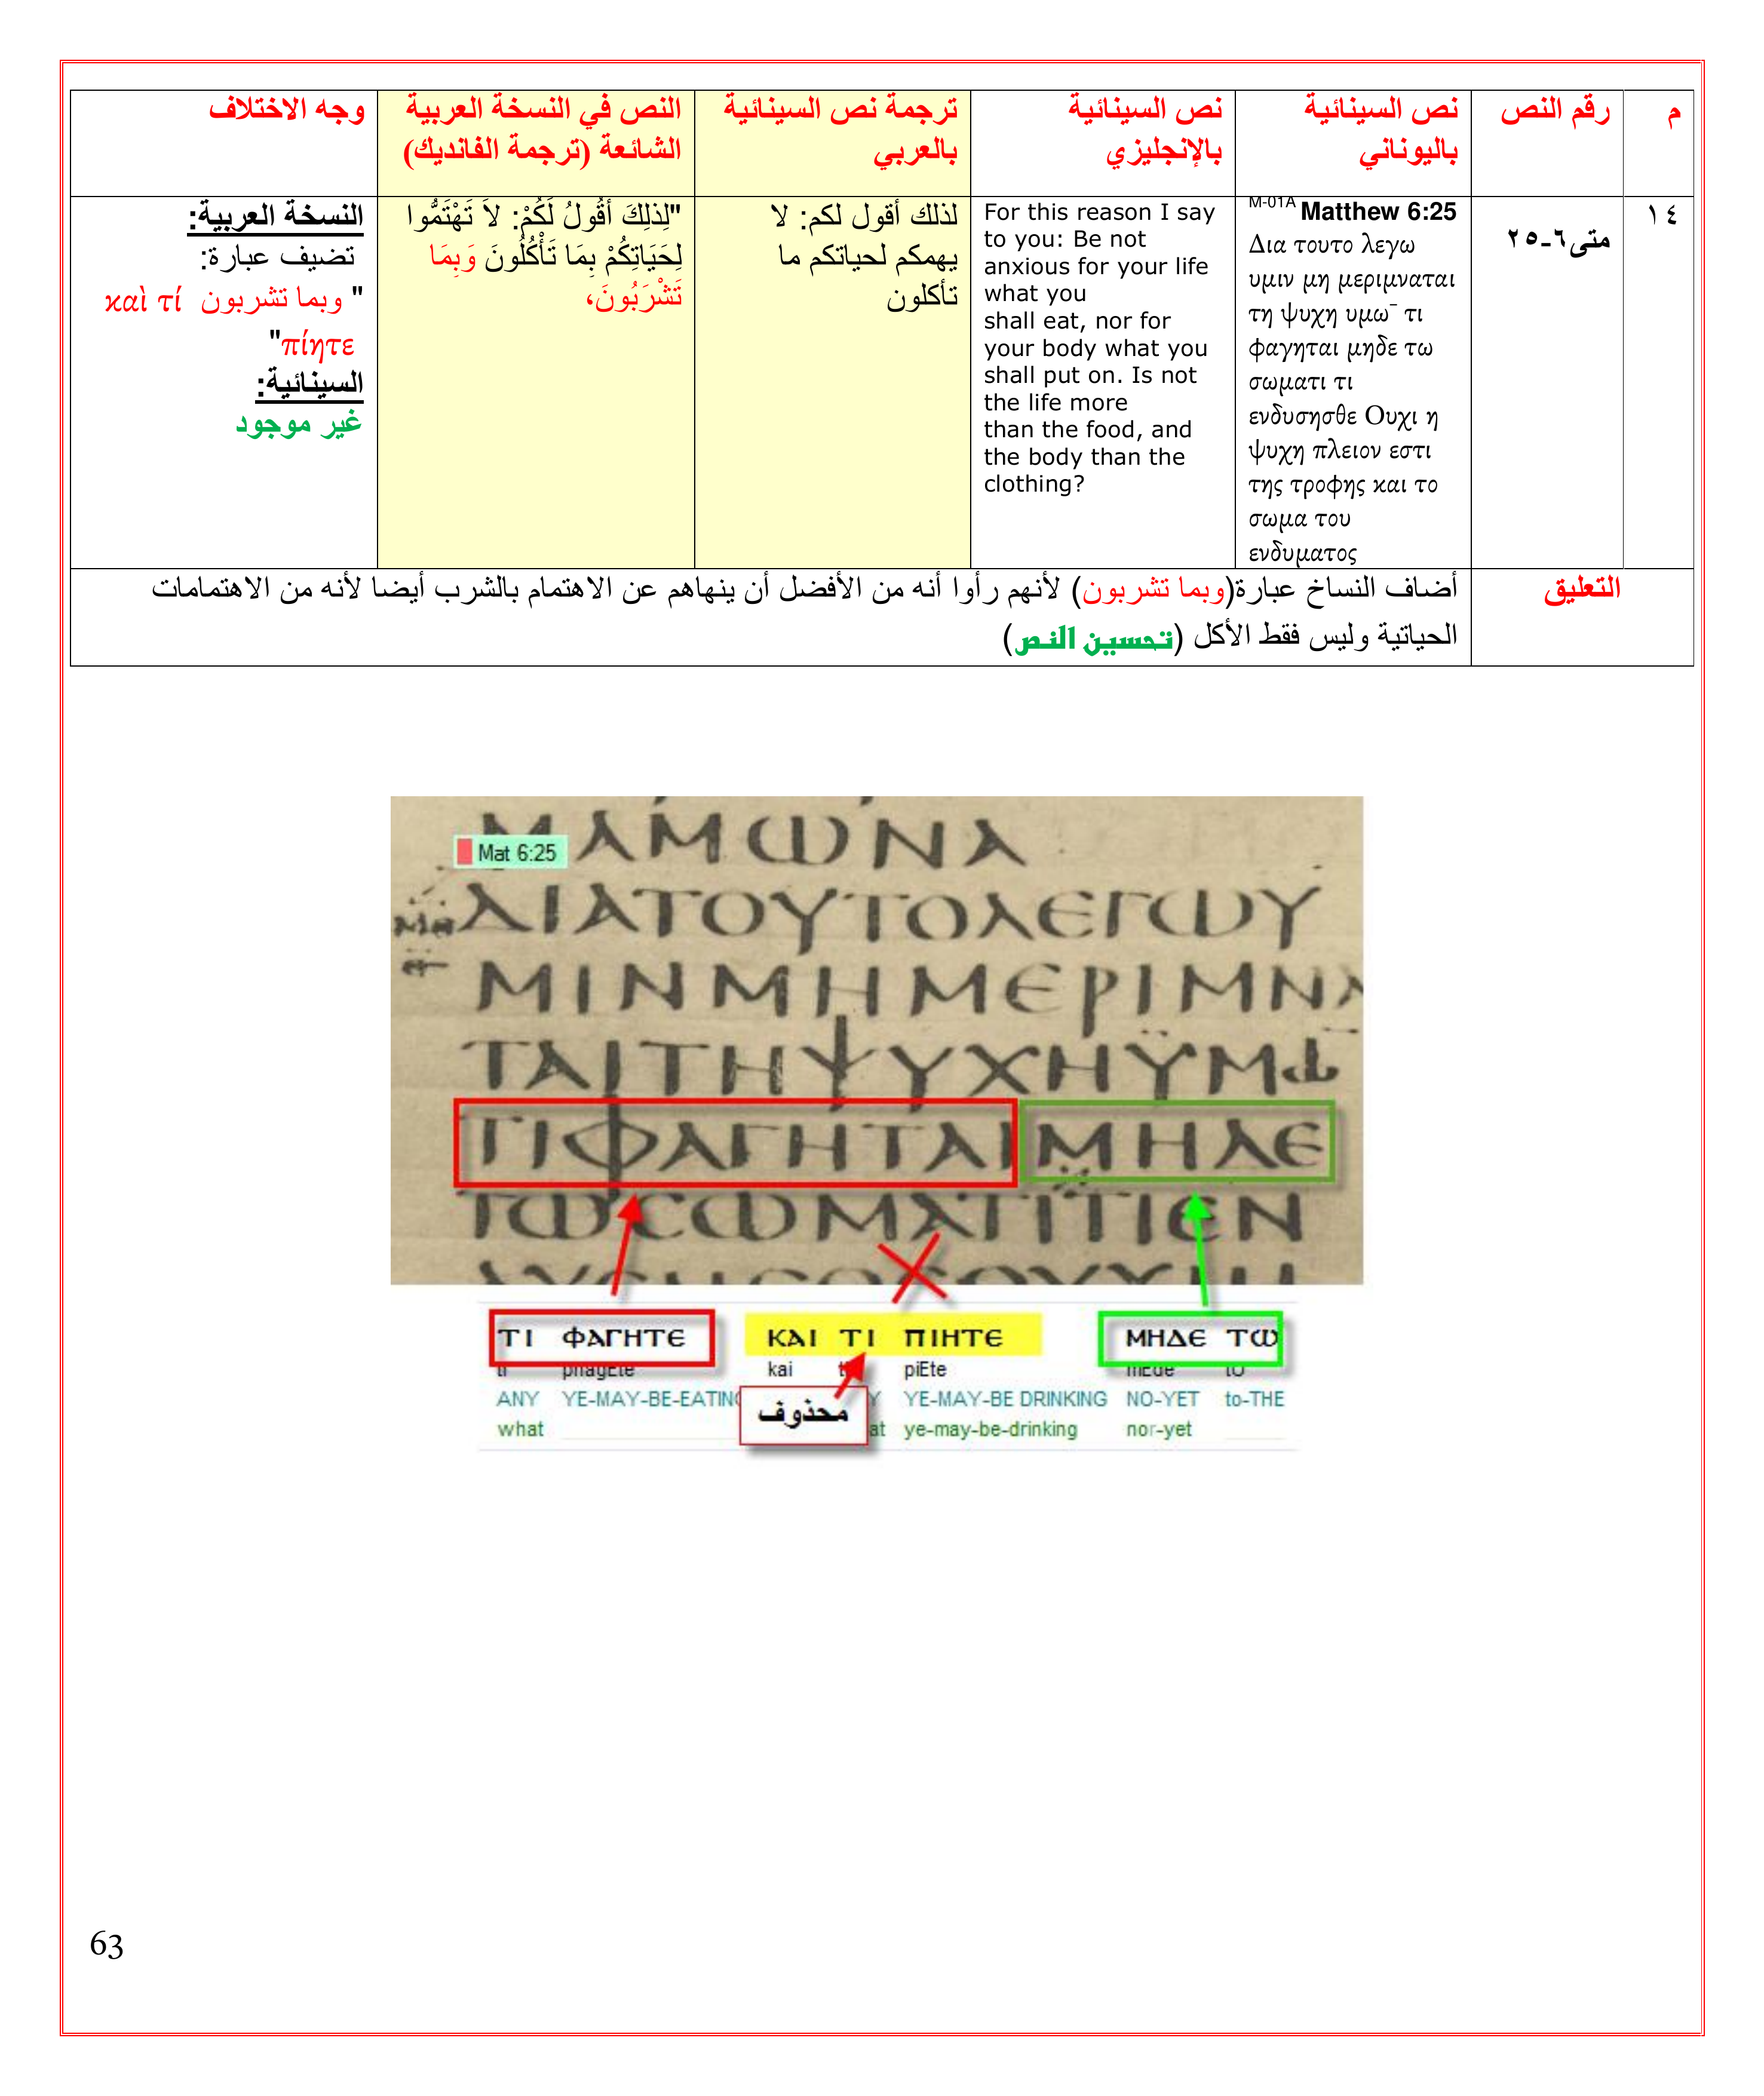 م
رقم النص
نص السينائية
باليوناني
نص السينائية
بالإنجليزي
ترجمة نص السينائية
بالعربي
النص في النسخة العربية
الشائعة (ترجمة الفانديك)
وجه الاختلاف
١٤
متى٦-٢٥
M-01A Matthew 6:25
Δια τουτο λεγω
υμιν μη μεριμναται
τη ψυχη υμω¯ τι
φαγηται μηδε τω
σωματι τι
ενδυσησθε Ουχι η
ψυχη πλειον εστι
της τροφης και το
σωμα του
ενδυματος
For this reason I say
to you: Be not
anxious for your life
what you
shall eat, nor for
your body what you
shall put on. Is not
the life more
than the food, and
the body than the
clothing?
لذلك أقول لكم: لا
يهمكم لحياتكم ما
تأكلون
"لِذلِكَ أَقُولُ لَكُمْ: لاَ تَهْتَمُّوا
لِحَيَاتِكُمْ بِمَا تَأْكُلُونَ وَبِمَا
تَشْرَبُونَ،
النسخة العربية:
تضيف عبارة:
" وبما تشربون καὶ τί
πίητε"
السينائية:
غير موجود
التعليق
أضاف النساخ عبارة(وبما تشربون) لأنهم رأوا أنه من الأفضل أن ينهاهم عن الاهتمام بالشرب أيضا لأنه من الاهتمامات
الحياتية وليس فقط الأكل (تحسين النص)
Mat 6:25
ΜΑΜΩΝΑ
ΔΙΑΤΟΥΤΟΛΕΓΩΥ
ΜΙΝΜΗΜΕΡΙΜΝΑ
ΤΑΙΤΗΨΥΧΗΫΜΩ
ΤΙΦΑΓΗΤΑΙΜΗΔΕ
ΤΩCΩΜΑΤΙΤΙΕΝ
ΤΙ ΦΑΓΗΤΕ ΚΑΙ ΤΙ ΠΙΗΤΕ ΜΗΔΕ ΤΩ
ti phagEte kai piEte mEde tO
ANY YE-MAY-BE-EATING YE-MAY-BE DRINKING NO-YET to-THE
محذوف
what ye-may-be-drinking nor-yet
63